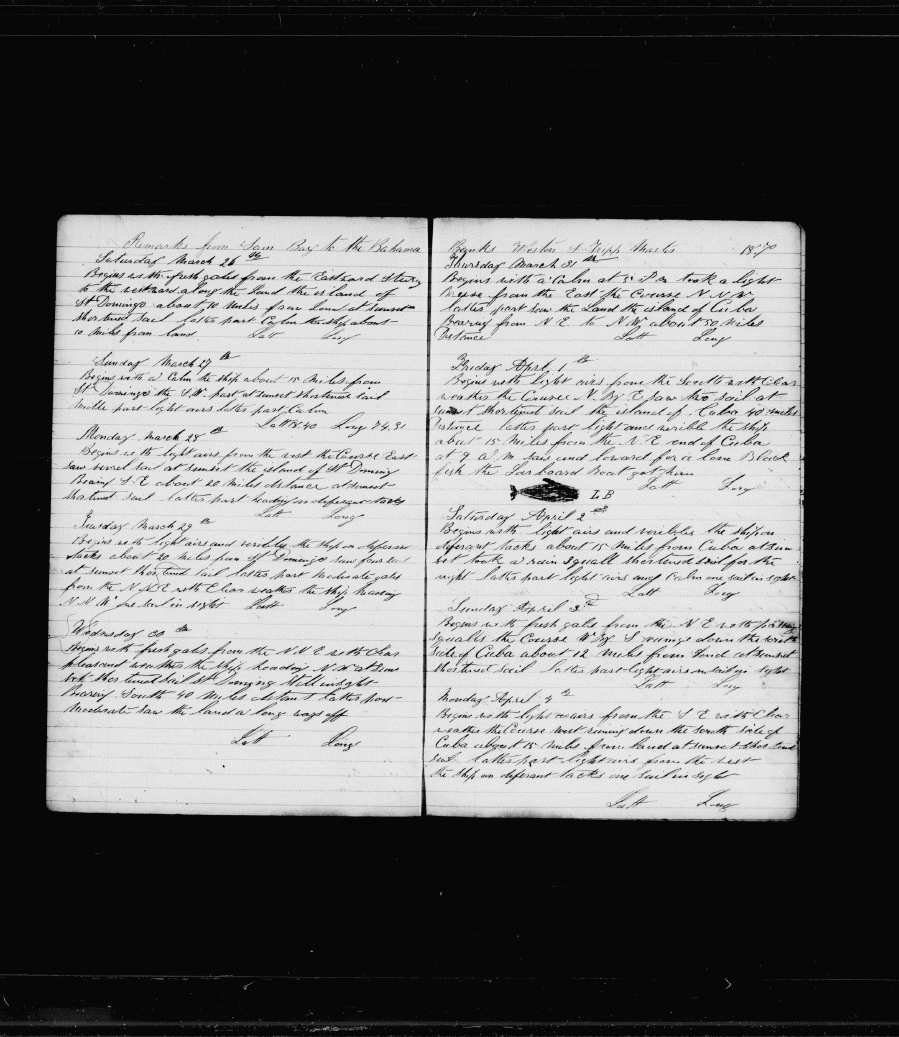 Remarks from Sam Bay to the Bahama
Saturday March 26th
Begins with fresh gales from the Eastward
to the westward along the Land the island of
St Domingo about 10 Miles from Land at sunset
shortened sail latter part Calm the ship about
10 miles from land Latt Long
Sunday March 27th
Begins with a Calm the ship about 15 Miles from
St Domingo the S W. part at sunset shortened sail
midle part light airs latter part Calm
Latt 18.40 Long 74.31
Monday March 28th
Begins with light airs from the west the Course East
saw sevrel sail at sunset the island of St Doming
Bearing S. E about 20 Miles distance at sunset
shortned sail latter part heading on deferant tacks
Latt Long
Tuesday March 29th
Begins with light airs and varibles the ship on deferant
tacks about 20 miles from St Domingo saw four sail
at sunset shortened sail latter part Moderate gales
from the N N E with Clear weather the ship heading
N N W one sail in sight Latt Long
Wednesday 30th
Begins with fresh gales from the N N E with Clear
pleasand weather the ship heading N W at sun
set shortened sail St Doming still in sight
Bearing South 40 Miles distant latter part
Moderate saw the land a long ways off
Latt Long
Banks Weston S Tripp Master 1870
Thursday March 31th
Begins with a Calm at 3 P M took a light
Breese from the East the Course N N W
latter part saw the Land the island of Cuba
Bearing from N E to N W about 50 Miles
Distance Latt Long
Friday Aprl 1th
Begins with light airs from the South with Clear
weather the Course N. By E saw two sail at
sunset shortened sail the island of Cuba 40 miles
Distance latter part light and verible the ship
about 15 Miles from the N E end of Cuba
at 9 a, m saw and lowred for a lone Black
fish the Larboard Boat got him
Latt Long
L B
Saturday April 2nd
Begins with light airs and varibles the ship on
deferant tacks about 15 Miles from Cuba at sun
set took a rain squall shortened sail for the
night latter part light airs and Calm one sail in sight
Latt Long
Sunday April 3rd
Begins with fresh gales from the N E with
squalls the Course W By S runing down the
side of Cuba about 12 Miles from Land at sunset
shortened sail latter part light airs in sight
Latt Long
Monday April 4th
Begins with light airs from the S E with Clear
weather the Course west runing down the South side of
Cuba about 15 Miles from land at sunset shortened
sail latter part light airs from the west
the ship on deferant tacks one sail in sight
Latt Long